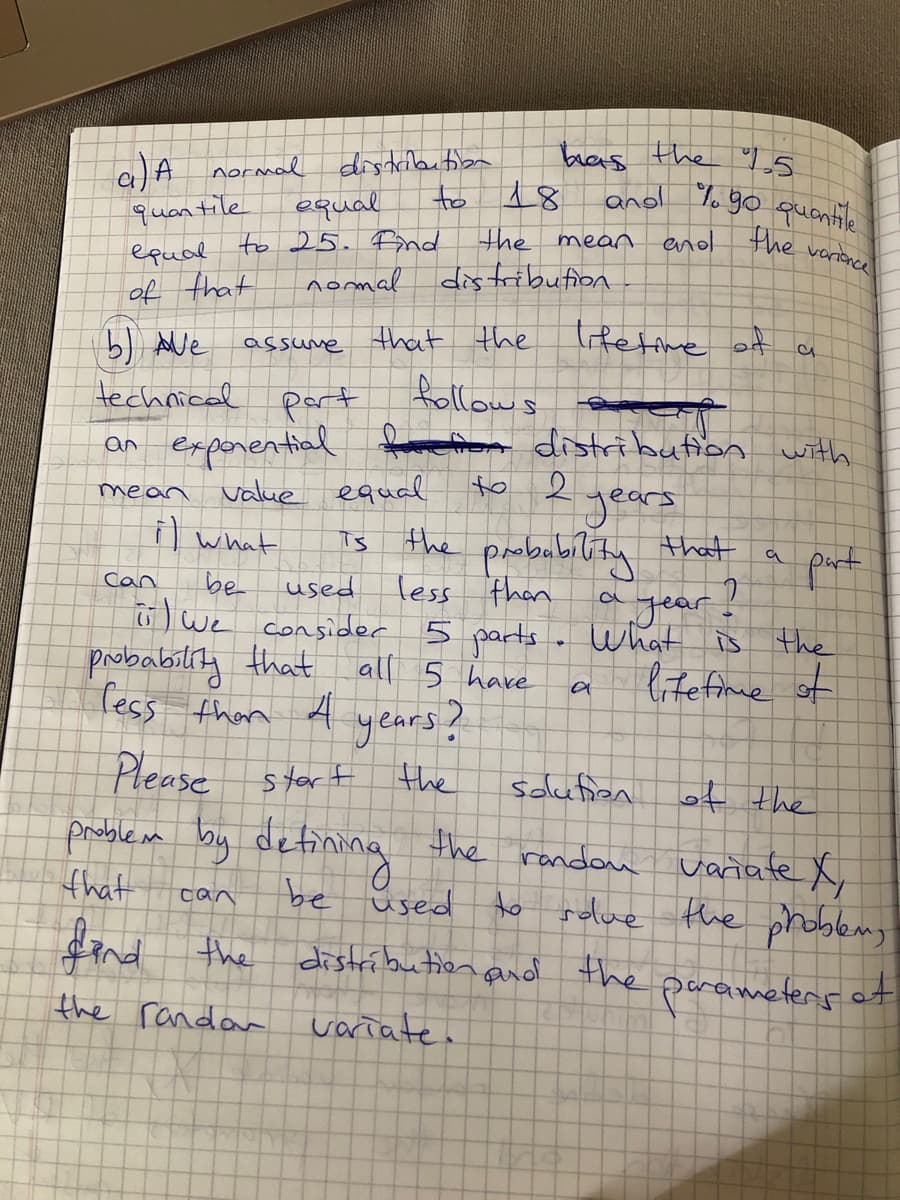 a) A normal distribution has the %5
quantile equal to 18 and %90 quantile
equal to 25. find the mean and the variance
of that normal distribution.
b) We assume that the lifetime of a
technical part follows
an exponential distribution with
mean value equal to 2 years
i) what is the probability that a part
can be used less than a year?
ii) we consider 5 parts. What is the
probability that all 5 have a lifetime of
less than 4 years?
Please start the solution of the
problem by defining the random variate X,
that can be used to solve the problem,
find the distribution and the parameters of
the random variate.